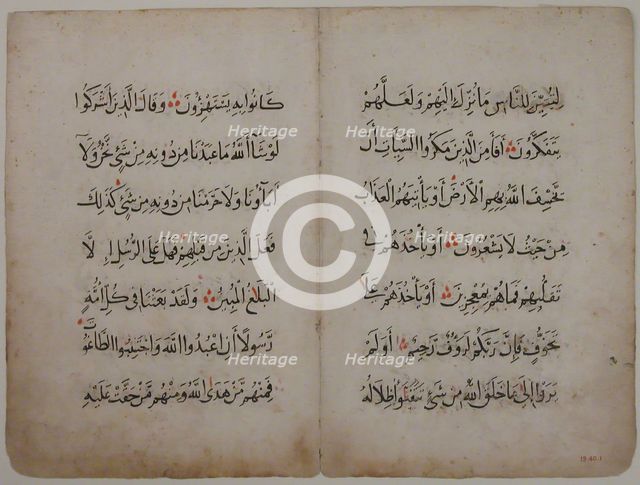 لتبين للناس ما نزل اليهم ولعلهم
يتفكرون أفأمن الذين مكروا السيئات أن
يخسف الله بهم الأرض أو يأتيهم العذاب
من حيث لا يشعرون أو يأخذهم في
تقلبهم فما هم بمعجزين أو يأخذهم على
تخوف فإن ربكم لرؤف رحيم أولم
يروا إلى ما خلق الله من شيء يتفيؤا ظلاله
كانوا به يستهزؤن وقال الذين اشركوا
لو شاء الله ما عبدنا من دونه من شيء نحن ولا
آباؤنا ولا حرمنا من دونه من شيء كذلك
فعل الذين من قبلهم فهل على الرسل إلا
البلغ المبين ولقد بعثنا في كل امة
رسولا أن اعبدوا الله واجتنبوا الطاغوت
فمنهم من هدى الله ومنهم من حقت عليه
19.40.1
Heritage
Heritage
Heritage
Heritage
Heritage
Heritage
©